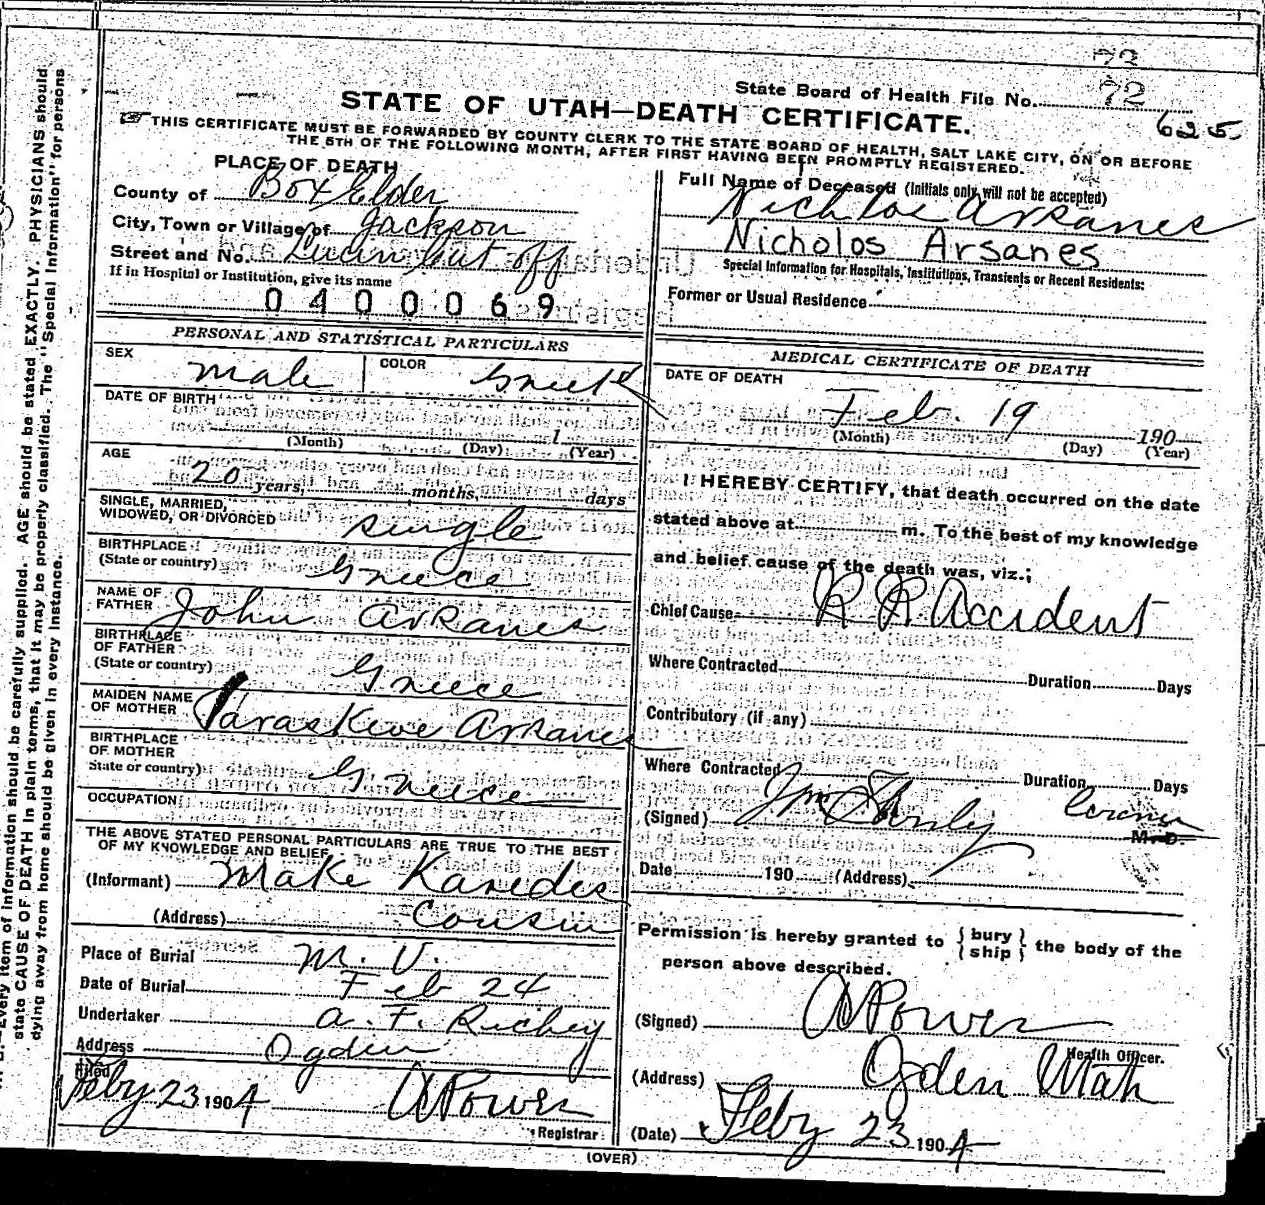 73
State Board of Health File No. 72
625
STATE OF UTAH—DEATH CERTIFICATE.
THIS CERTIFICATE MUST BE FORWARDED BY COUNTY CLERK TO THE STATE BOARD OF HEALTH, SALT LAKE CITY, ON OR BEFORE
THE 5TH OF THE FOLLOWING MONTH, AFTER FIRST HAVING BEEN PROMPTLY REGISTERED.
PLACE OF DEATH
County of Box Elder
City, Town or Village of Jackson
Street and No. Lucin Cut off
If in Hospital or Institution, give its name
0400069
Full Name of Deceased (Initials only will not be accepted)
Arsanes
Nicholos Arsanes
Special Information for Hospitals, Institutions, Transients or Recent Residents:
Former or Usual Residence
PERSONAL AND STATISTICAL PARTICULARS
SEX male COLOR Greek
DATE OF BIRTH
(Month) (Day) 1 (Year)
AGE
20 years, months, days
SINGLE, MARRIED,
WIDOWED, OR DIVORCED single
BIRTHPLACE
(State or country) Greece
NAME OF
FATHER John Arkanes
BIRTHPLACE
OF FATHER
(State or country) Greece
MAIDEN NAME
OF MOTHER Paraskeve Arkanes
BIRTHPLACE
OF MOTHER
State or country) Greece
OCCUPATION
THE ABOVE STATED PERSONAL PARTICULARS ARE TRUE TO THE BEST
OF MY KNOWLEDGE AND BELIEF
(Informant) Make Karedes
(Address) Cousin
Place of Burial M. V.
Date of Burial Feb 24
Undertaker A. F. Richey
Address Ogden
Filed
Feby 23 1904 A Power
Registrar
MEDICAL CERTIFICATE OF DEATH
DATE OF DEATH
Feb. 19 190
(Month) (Day) (Year)
I HEREBY CERTIFY, that death occurred on the date
stated above at m. To the best of my knowledge
and belief cause of the death was, viz.;
Chief Cause R R Accident
Where Contracted Duration Days
Contributory (if any)
Where Contracted Duration Days
(Signed) Coroner
M. D.
Date 190 (Address)
Permission is hereby granted to {bury
ship} the body of the
person above described.
(Signed) A Power
Health Officer.
(Address) Ogden Utah
(Date) Feby 23 1904
(OVER)
Every item of information should be carefully supplied. AGE should be stated EXACTLY. PHYSICIANS should
state CAUSE OF DEATH in plain terms, that it may be properly classified. The "Special Information" for persons
dying away from home should be given in every instance.